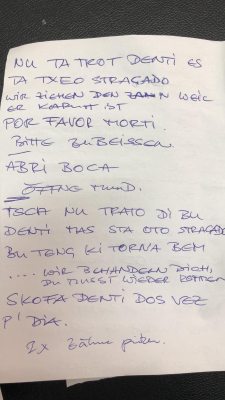 NU TA TROT DENTI ES
TA TXEO STRAGADO
WIR ZIEHEN DEN ZAHN WEIL
ER KAPUTT IST
POR FAVOR MORTI.
BITTE ZUBEISSEN
ABRI BOCA
ÖFFNE MUND.
TSCH NU TRATO DI BU
DENTI MAS STA OTO STRAGADO
BU TENG KI TORNA BEM
.... WIR BEHANDELN DICH,
DU MUSST WIEDER KOMMEN
SKOFA DENTI DOS VEZ
P'DIA.
2x Zähne putzen.